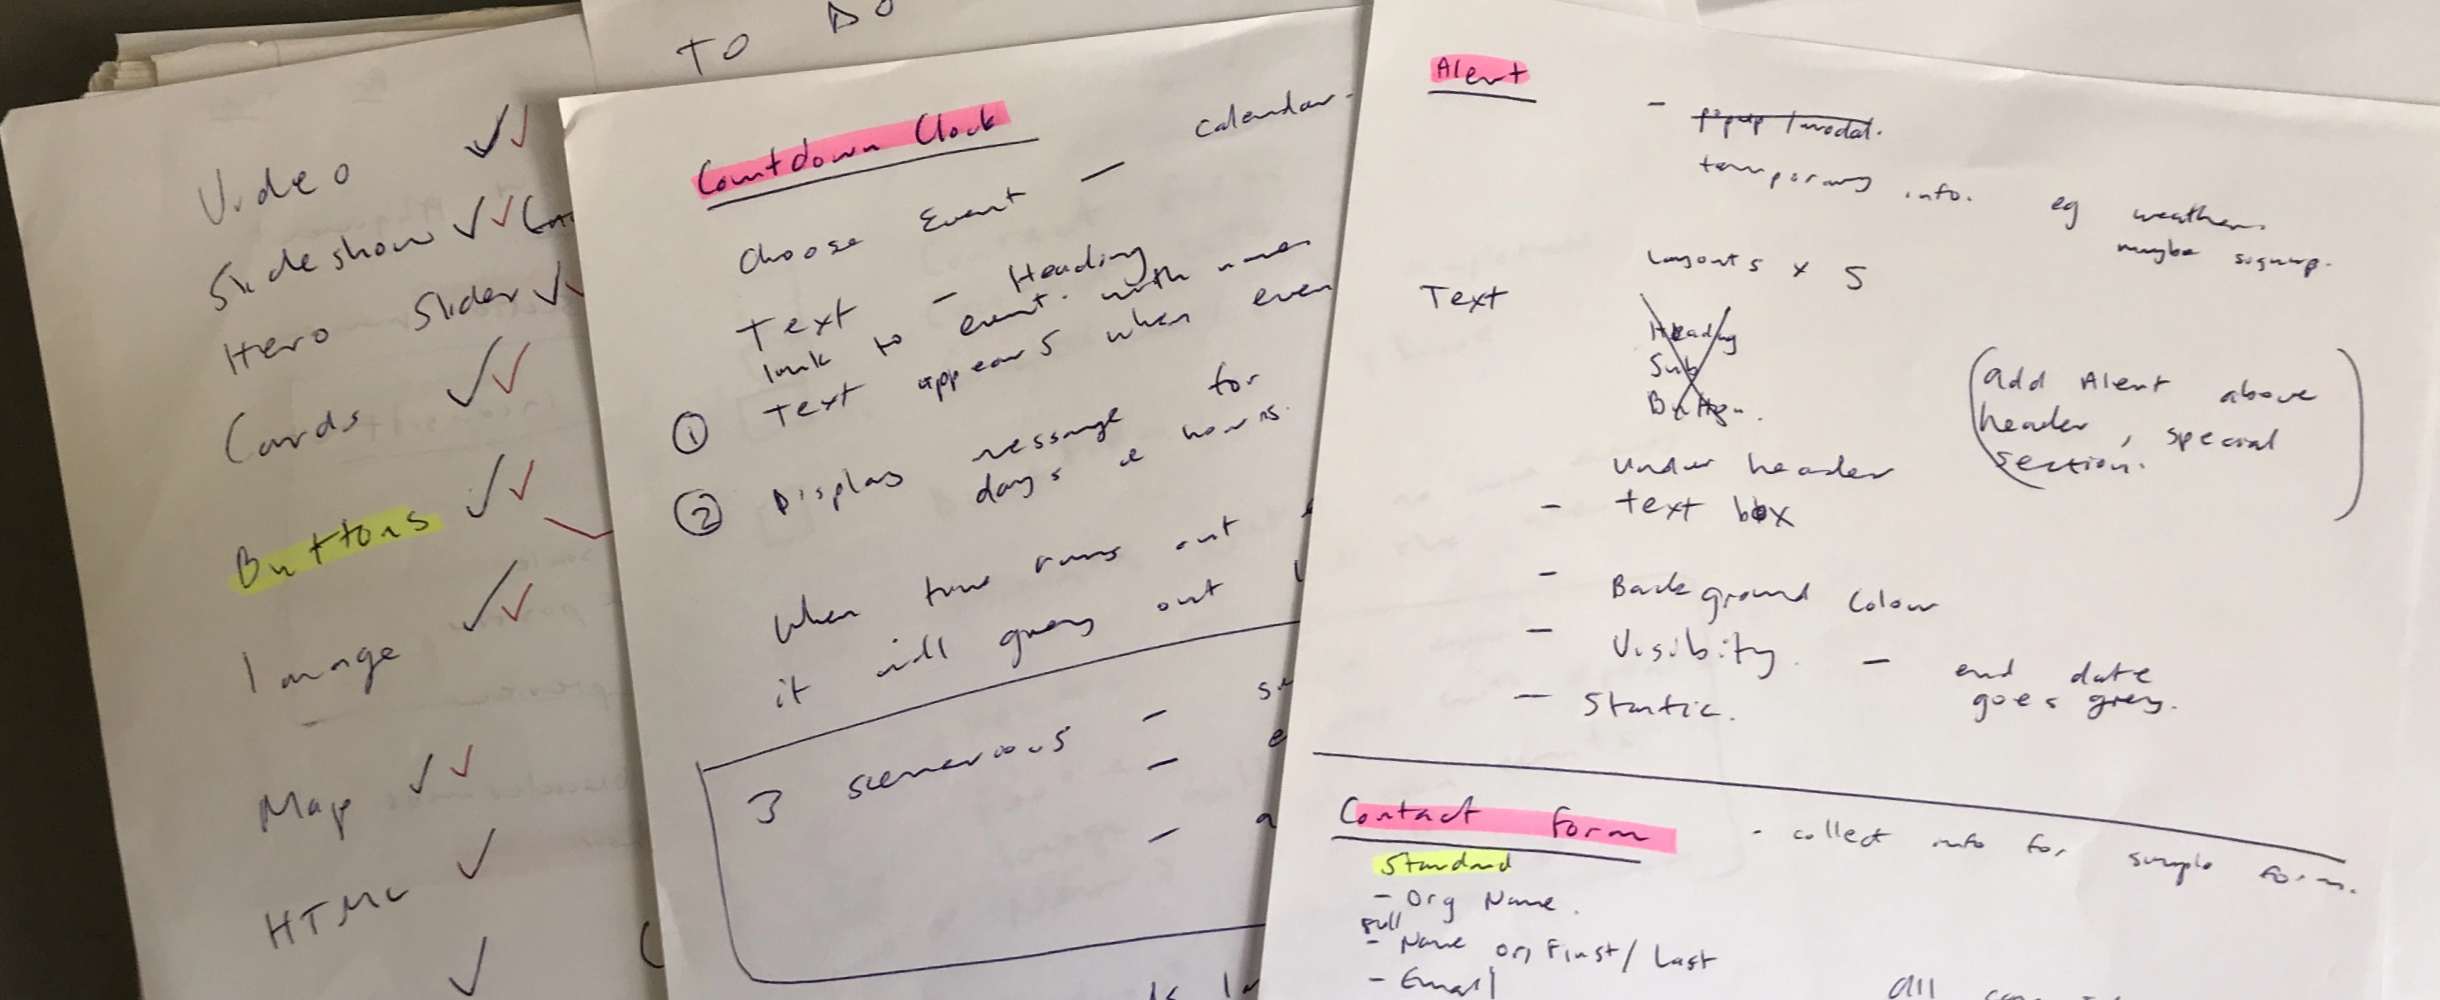 TO DO
Video
Slideshow
Hero Slider
Cards
Buttons
Image
Map
HTML
Countdown Clock
Choose Event - calendar.
Text - Heading
link to event. with name
① Text appears when even
② Display message for
days & hours.
When time runs out
it will grey out
3 scenerious -
-
-
Alert
- popup / modal.
temporary info. eg weather.
maybe signup.
Layouts x 5
Text
Heading
Sub
Button.
(add Alert above
header, special
section.)
Under header
- text box
- Background Colour
- Visibity. - end date
goes grey.
- Static.
Contact Form - collect info for simple form.
Standard
- Org Name.
full
- Name or, First / Last
- Email
All